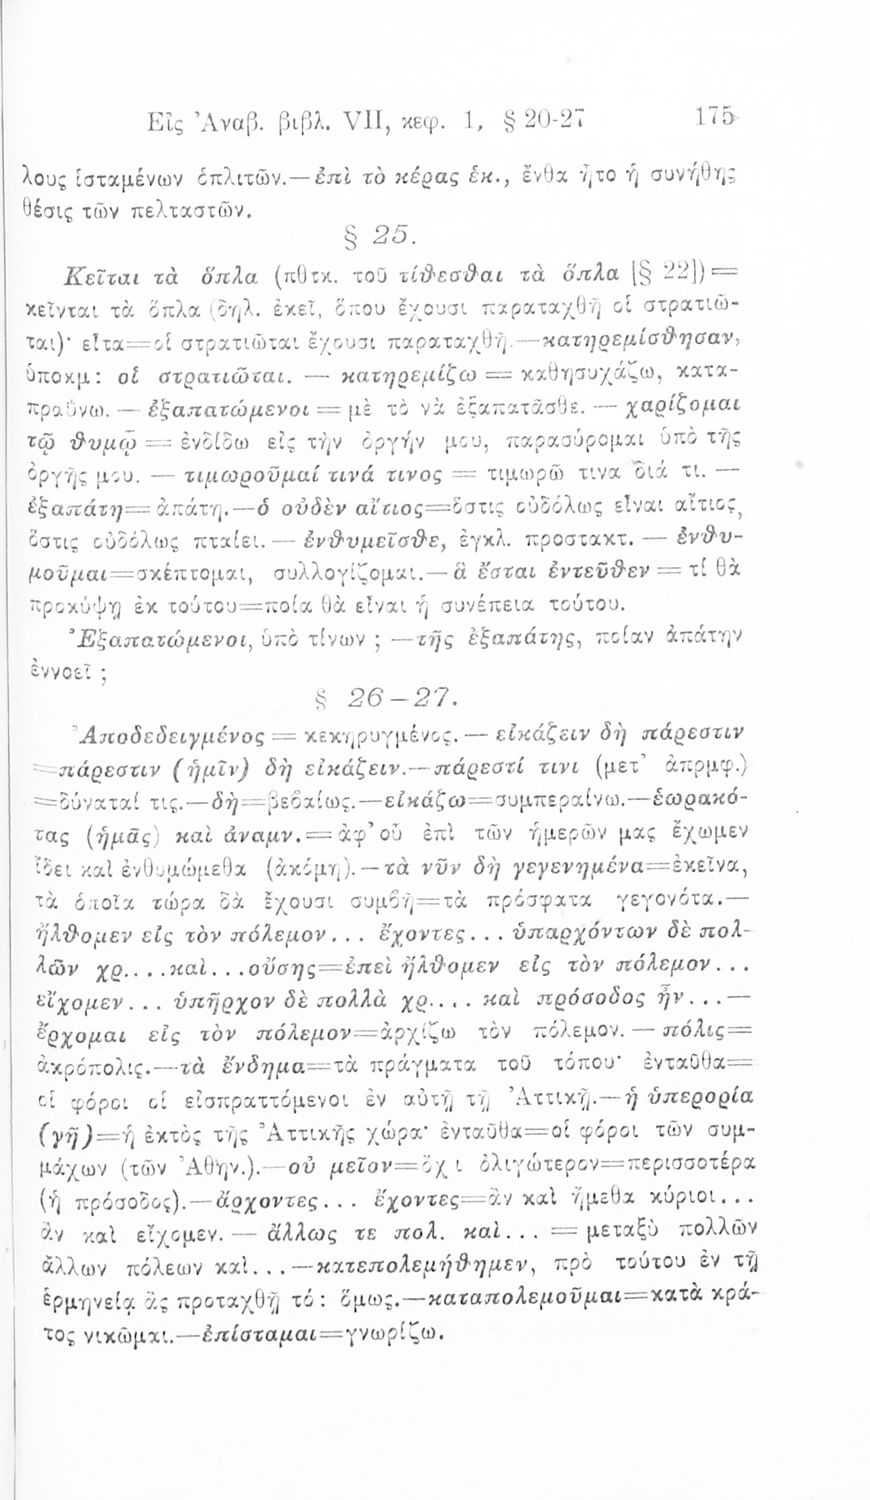 Εἰς Ἀναβ. βιβλ. VII, κεφ. 1, § 20-27 175
λους ἱσταμένων ὁπλιτῶν.—ἐπὶ τὸ κέρας ἑκ., ἔνθα ἦτο ἡ συνήθης
θέσις τῶν πελταστῶν.
§ 25.
Κεῖται τὰ ὅπλα (πθτκ. τοῦ τίθεσθαι τὰ ὅπλα [§ 22])=
κεῖνται τὰ ὅπλα (δηλ. ἐκεῖ, ὅπου ἔχουσι παραταχθῆ οἱ στρατιῶ-
ται)· εἶτα=οἱ στρατιῶται ἔχουσι παραταχθῆ.—κατηρεμίσθησαν,
ὑποκμ: οἱ στρατιῶται. — κατηρεμίζω = καθησυχάζω, κατα-
πραΰνω. — ἐξαπατώμενοι = μὲ τὸ νὰ ἐξαπατᾶσθε. — χαρίζομαι
τῷ θυμῷ = ἐνδίδω εἰς τὴν ὀργήν μου, παρασύρομαι ὑπὸ τῆς
ὀργῆς μου. — τιμωροῦμαί τινά τινος = τιμωρῶ τινα διά τι. —
ἐξαπάτη=ἀπάτη.—ὁ οὐδὲν αἴτιος=ὅστις οὐδόλως εἶναι αἴτιος,
ὅστις οὐδόλως πταίει. — ἐνθυμεῖσθε, ἐγκλ. προστακτ. — ἐνθυ-
μοῦμαι=σκέπτομαι, συλλογίζομαι.—ἃ ἔσται ἐντεῦθεν = τί θὰ
προκύψῃ ἐκ τούτου=ποία θὰ εἶναι ἡ συνέπεια τούτου.
Ἐξαπατώμενοι, ὑπὸ τίνων ; —τῆς ἐξαπάτης, ποίαν ἀπάτην
ἐννοεῖ ;
§ 26—27.
Ἀποδεδειγμένος = κεκηρυγμένος. — εἰκάζειν δὴ πάρεστιν
=πάρεστιν (ἡμῖν) δὴ εἰκάζειν.—πάρεστί τινι (μετ' ἀπρμφ.)
=δύναταί τις.—δὴ=βεβαίως.—εἰκάζω=συμπεραίνω.—ἑωρακό-
τας (ἡμᾶς) καὶ ἀναμν.=ἀφ' οὗ ἐπὶ τῶν ἡμερῶν μας ἔχωμεν
ἴδει καὶ ἐνθυμώμεθα (ἀκόμη).—τὰ νῦν δὴ γεγενημένα=ἐκεῖνα,
τὰ ὁποῖα τώρα δὰ ἔχουσι συμβῆ=τὰ πρόσφατα γεγονότα.—
ἤλθομεν εἰς τὸν πόλεμον... ἔχοντες... ὑπαρχόντων δὲ πολ-
λῶν χρ....καὶ...οὔσης=ἐπεὶ ἤλθομεν εἰς τὸν πόλεμον...
εἴχομεν... ὑπῆρχον δὲ πολλὰ χρ.... καὶ πρόσοδος ἦν...—
ἔρχομαι εἰς τὸν πόλεμον=ἀρχίζω τὸν πόλεμον. — πόλις=
ἀκρόπολις.—τὰ ἔνδημα=τὰ πράγματα τοῦ τόπου· ἐνταῦθα=
οἱ φόροι οἱ εἰσπραττόμενοι ἐν αὐτῇ τῇ Ἀττικῇ.—ἡ ὑπερορία
(γῆ)=ἡ ἐκτὸς τῆς Ἀττικῆς χώρα· ἐνταῦθα=οἱ φόροι τῶν συμ-
μάχων (τῶν Ἀθην.).—οὐ μεῖον=ὄχι ὀλιγώτερον=περισσοτέρα
(ἡ πρόσοδος).—ἄρχοντες... ἔχοντες=ἂν καὶ ἤμεθα κύριοι...
ἂν καὶ εἴχομεν. — ἄλλως τε πολ. καὶ... = μεταξὺ πολλῶν
ἄλλων πόλεων καὶ...—κατεπολεμήθημεν, πρὸ τούτου ἐν τῇ
ἑρμηνείᾳ ἂς προταχθῇ τό: ὅμως.—καταπολεμοῦμαι=κατὰ κρά-
τος νικῶμαι.—ἐπίσταμαι=γνωρίζω.